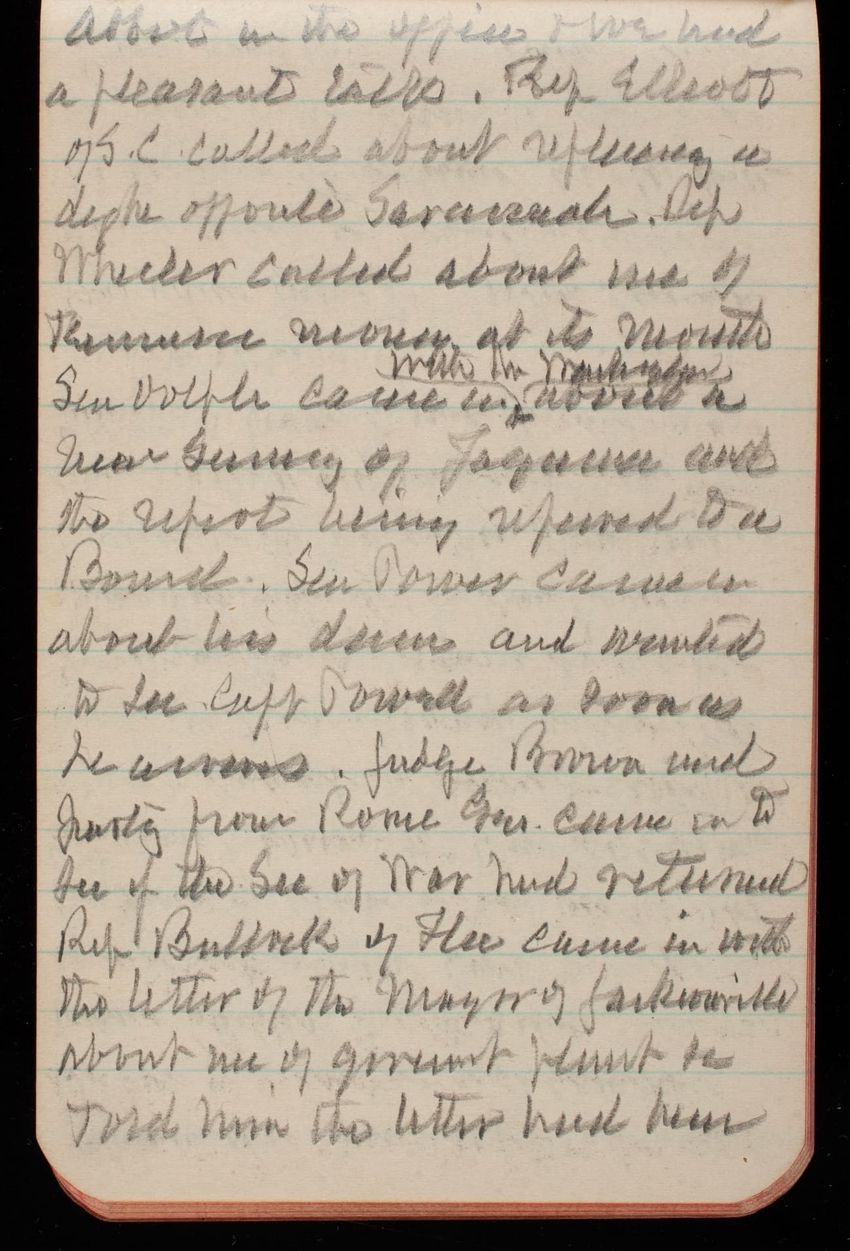 Abbot in the office & we had
a pleasant talk. Rep Elliott
of S.C. called about
opposite Savannah. Rep
Wheeler called about use of
Tennessee money at its mouth
Sen Dolph came in with Mr about a
new Survey of Yaquina and
the report being referred to a
Board. Sen Power came in
about his dam and wanted
to see Capt Powell as soon as
he arrives. Judge Brown and
party from Rome Geo. came in to
see if the Sec of War had returned
Rep Bullock of Fla came in with
the letter of the Mayor of Jacksonville
about use of goverment plant he
Told him the letter had been